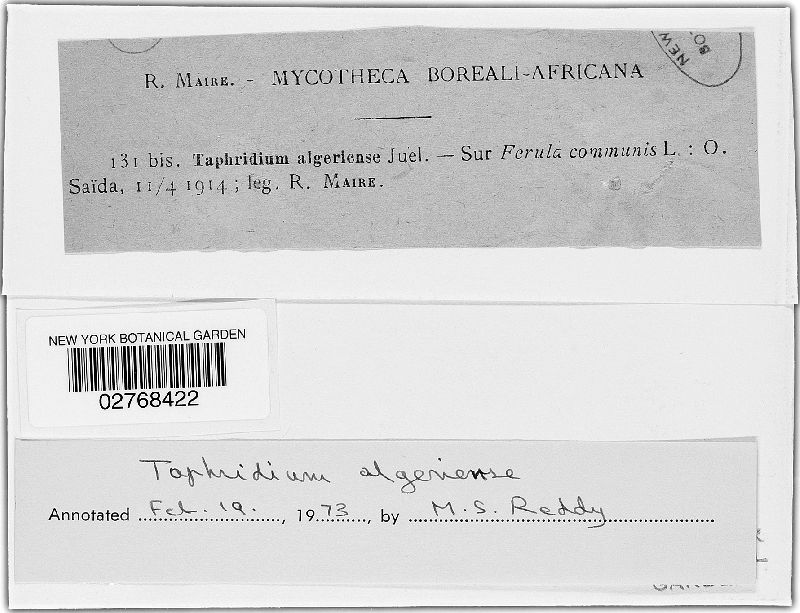 NEW
BO
R. MAIRE. - MYCOTHECA BOREALI-AFRICANA
131 bis. Taphridium algeriense Juel. — Sur Ferula communis L. : O.
Saïda, 11/4 1914 ; leg. R. MAIRE.
NEW YORK BOTANICAL GARDEN
02768422
Taphridium algeriense
Annotated Feb. 19., 1973, by M. S. Reddy